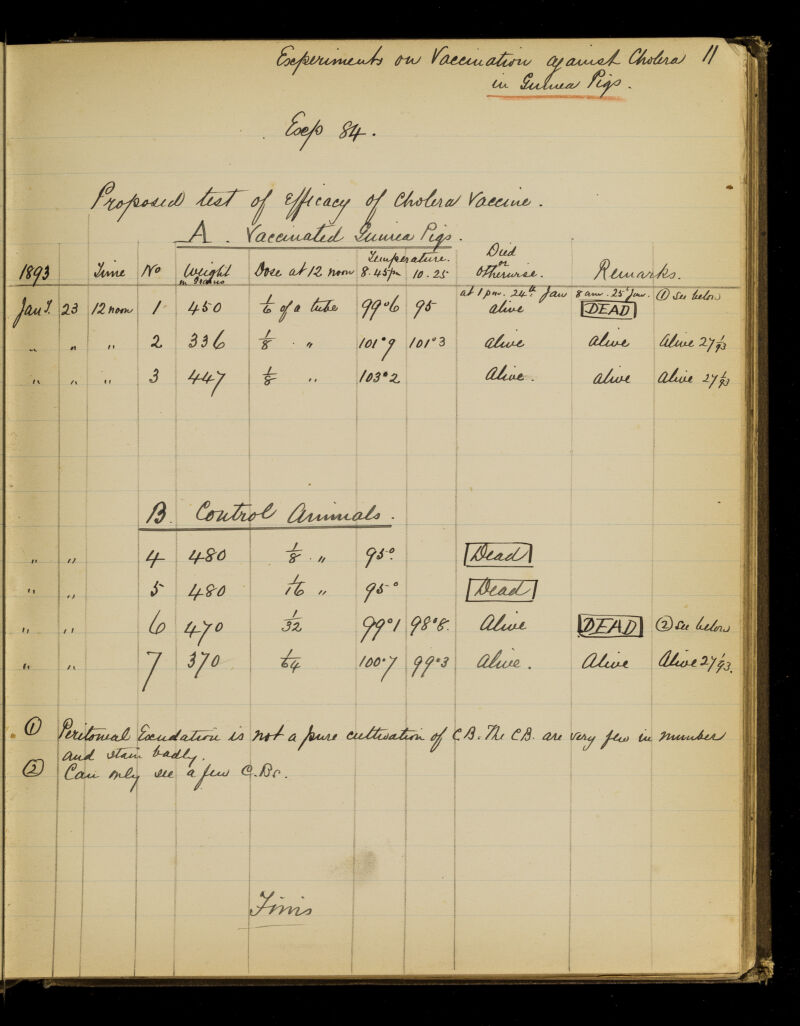 Experiments on Vaccination against Cholera 11
in Guinea Pigs.
Exp 84.
Proposed test of Efficacy of Cholera Vaccine.
A. Vaccinated Guinea Pigs.
1893 Time No Weight in Grams Dose at 12 noon Temperature. 8.45pm 10.25 Died or otherwise. Remarks.
at 1 pm. 24th Jan 8 am. 25th Jan.
Jany. 23 12 noon 1 450 1/6 of a tube 99°6 95 alive DEAD ① See below
" " " 2 336 1/8 " 101°9 101°3 alive alive Alive 27 1/93
" " " 3 447 1/8 " 103°2 Alive. alive Alive 27 1/93
B. Control Animals.
" " 4 480 1/8 " 95°. Dead
" " 5 480 1/16 " 95° Dead
" " 6 470 1/32 99°1 98°8. Alive DEAD ② See below
" " 7 370 1/64 100°7 99°3 alive. Alive Alive 27 1/93.
① Peritoneal Exudation is not a pure cultivation of C.B. The C.B. are very few in number
and stain badly.
② Can only see a few C.Bs.
Finis